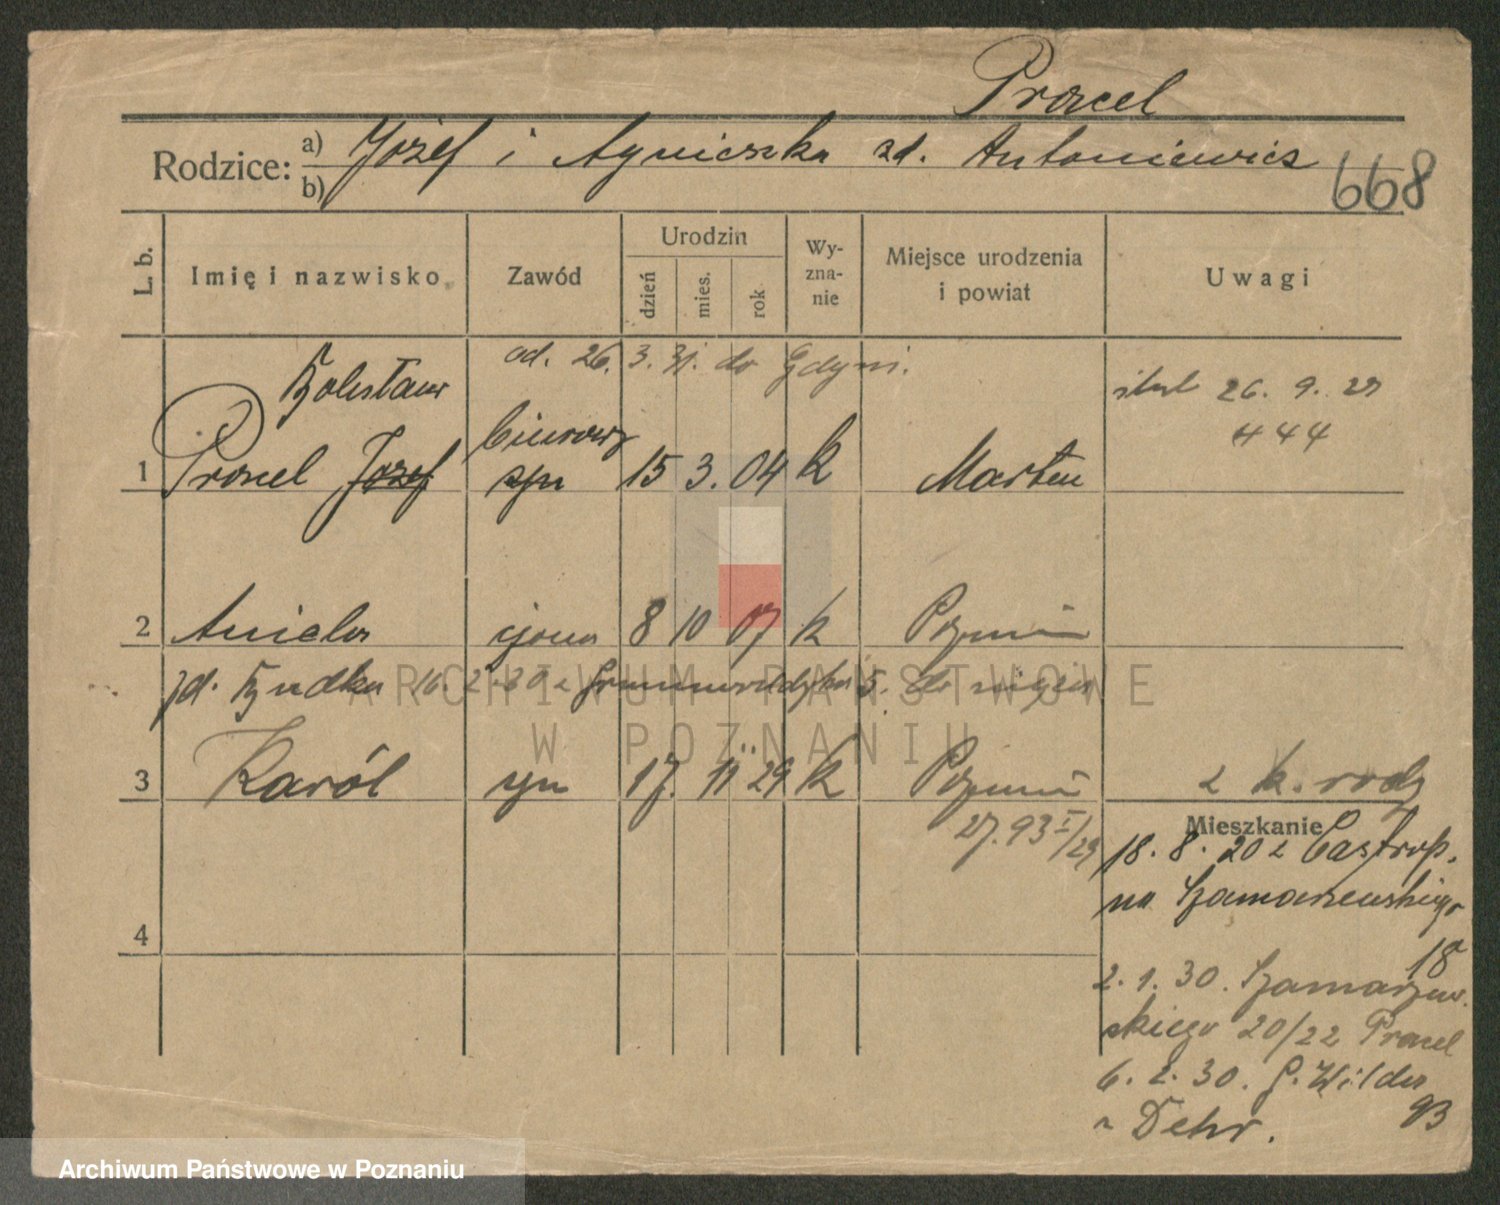 Procel
Rodzice: a) Józef i Agnieszka zd. Antoniewicz
b)
668
L. b. Imię i nazwisko Zawód Urodzin dzień mies. rok Wy-zna-nie Miejsce urodzenia i powiat Uwagi
od. 26. 3. 31. do Gdyni.
Bolesław
26. 9. 27
444
biurowy
1 Procel Józef 15 3. 04 k Marten
2 Aniela żona 8 10 07 k Poznań
zd. Budka 16. 2. 30 z
3 Karól syn 17. 11 29 k Poznań z k. rodz
27. 93 I/29
Mieszkanie
18. 8. 20 z Castrop.
na Szamarzewskiego
18
4
2. 1. 30. Szamarzew.
skiego 20/22 Procel
6. 2. 30. G. Wilda
93
ARCHIWUM PAŃSTWOWE
W POZNANIU
Archiwum Państwowe w Poznaniu